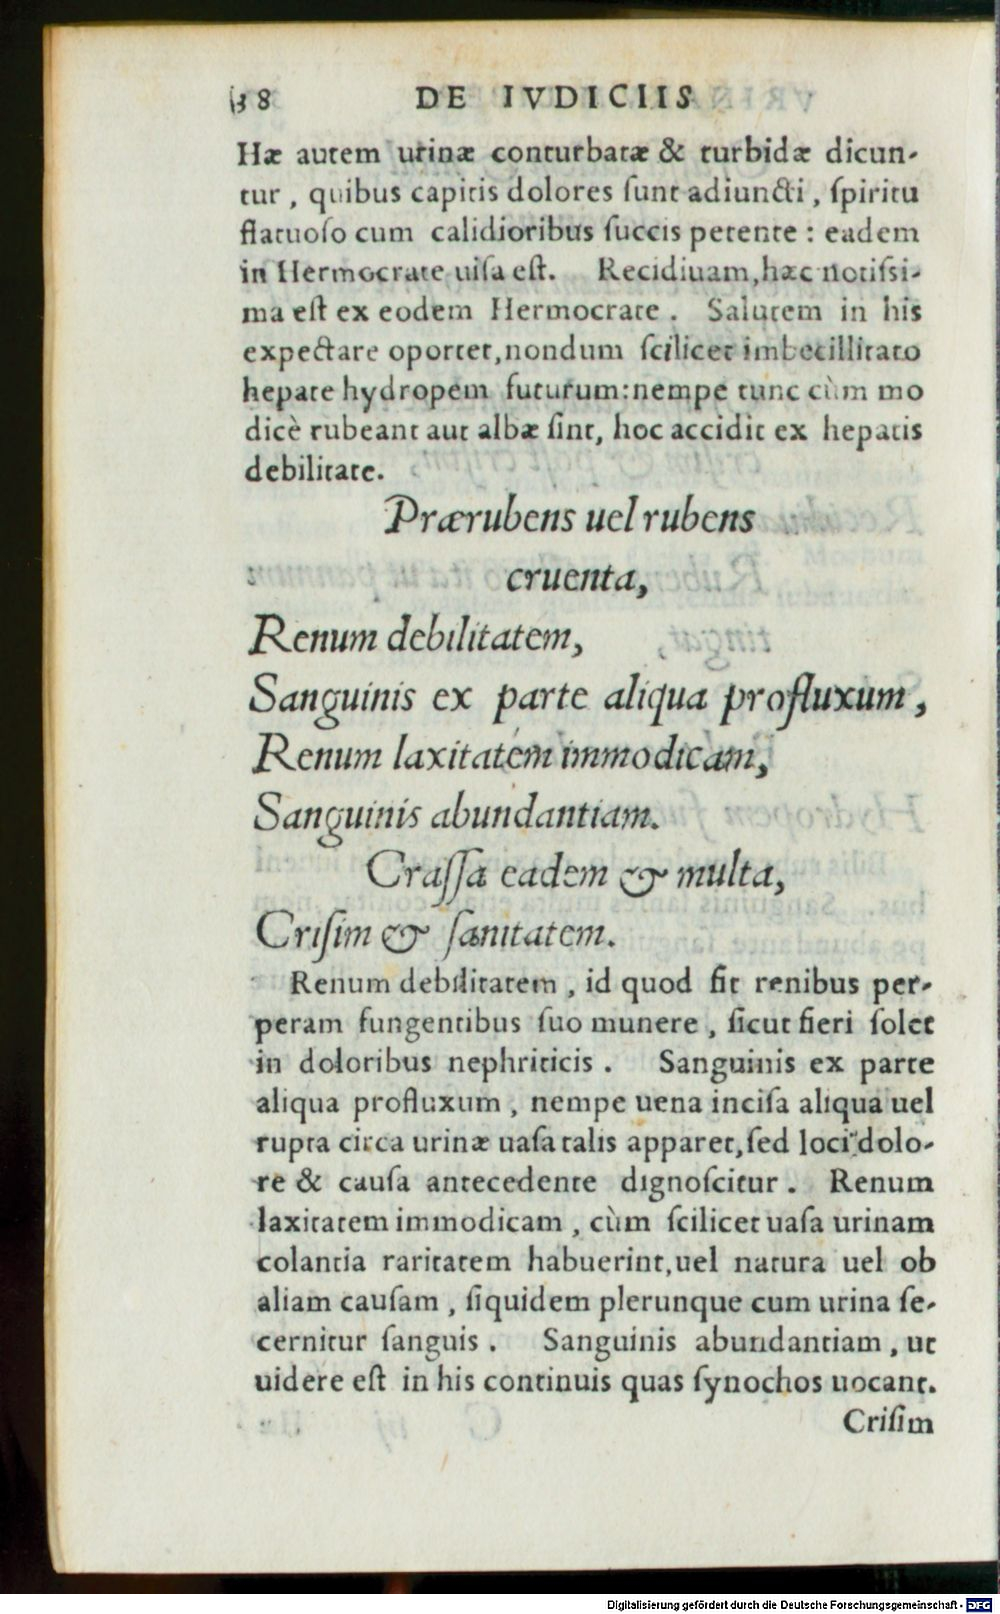 38 DE IVDICIIS
Hæ autem urinæ conturbatæ & turbidæ dicun-
tur, quibus capitis dolores ſunt adiuncti, ſpiritu
flatuoſo cum calidioribus ſuccis petente: eadem
in Hermocrate uiſa eſt. Recidiuam, hæc notiſsi-
ma eſt ex eodem Hermocrate. Salutem in his
expectare oportet, nondum ſcilicet imbecillitato
hepate hydropem futurum: nempe tunc cùm mo
dicè rubeant aut albæ ſint, hoc accidit ex hepatis
debilitate.
Prærubens uel rubens
cruenta,
Renum debilitatem,
Sanguinis ex parte aliqua profluxum,
Renum laxitatem immodicam,
Sanguinis abundantiam.
Craſſa eadem & multa,
Criſim & ſanitatem.
Renum debilitatem, id quod fit renibus per-
peram fungentibus ſuo munere, ſicut fieri ſolet
in doloribus nephriticis. Sanguinis ex parte
aliqua profluxum, nempe uena inciſa aliqua uel
rupta circa urinæ uaſa talis apparet, ſed loci dolo-
re & cauſa antecedente dignoſcitur. Renum
laxitatem immodicam, cùm ſcilicet uaſa urinam
colantia raritatem habuerint, uel natura uel ob
aliam cauſam, ſiquidem plerunque cum urina ſe-
cernitur ſanguis. Sanguinis abundantiam, ut
uidere eſt in his continuis quas ſynochos uocant.
Criſim
Digitalisierung gefördert durch die Deutsche Forschungsgemeinschaft - DFG